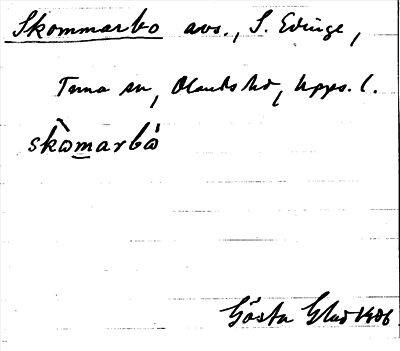 Skommarbo avs., S. Edinge,
Tuna sn, Olands hd, Upps. l.
skòmarbó
Gösta Glad 1906